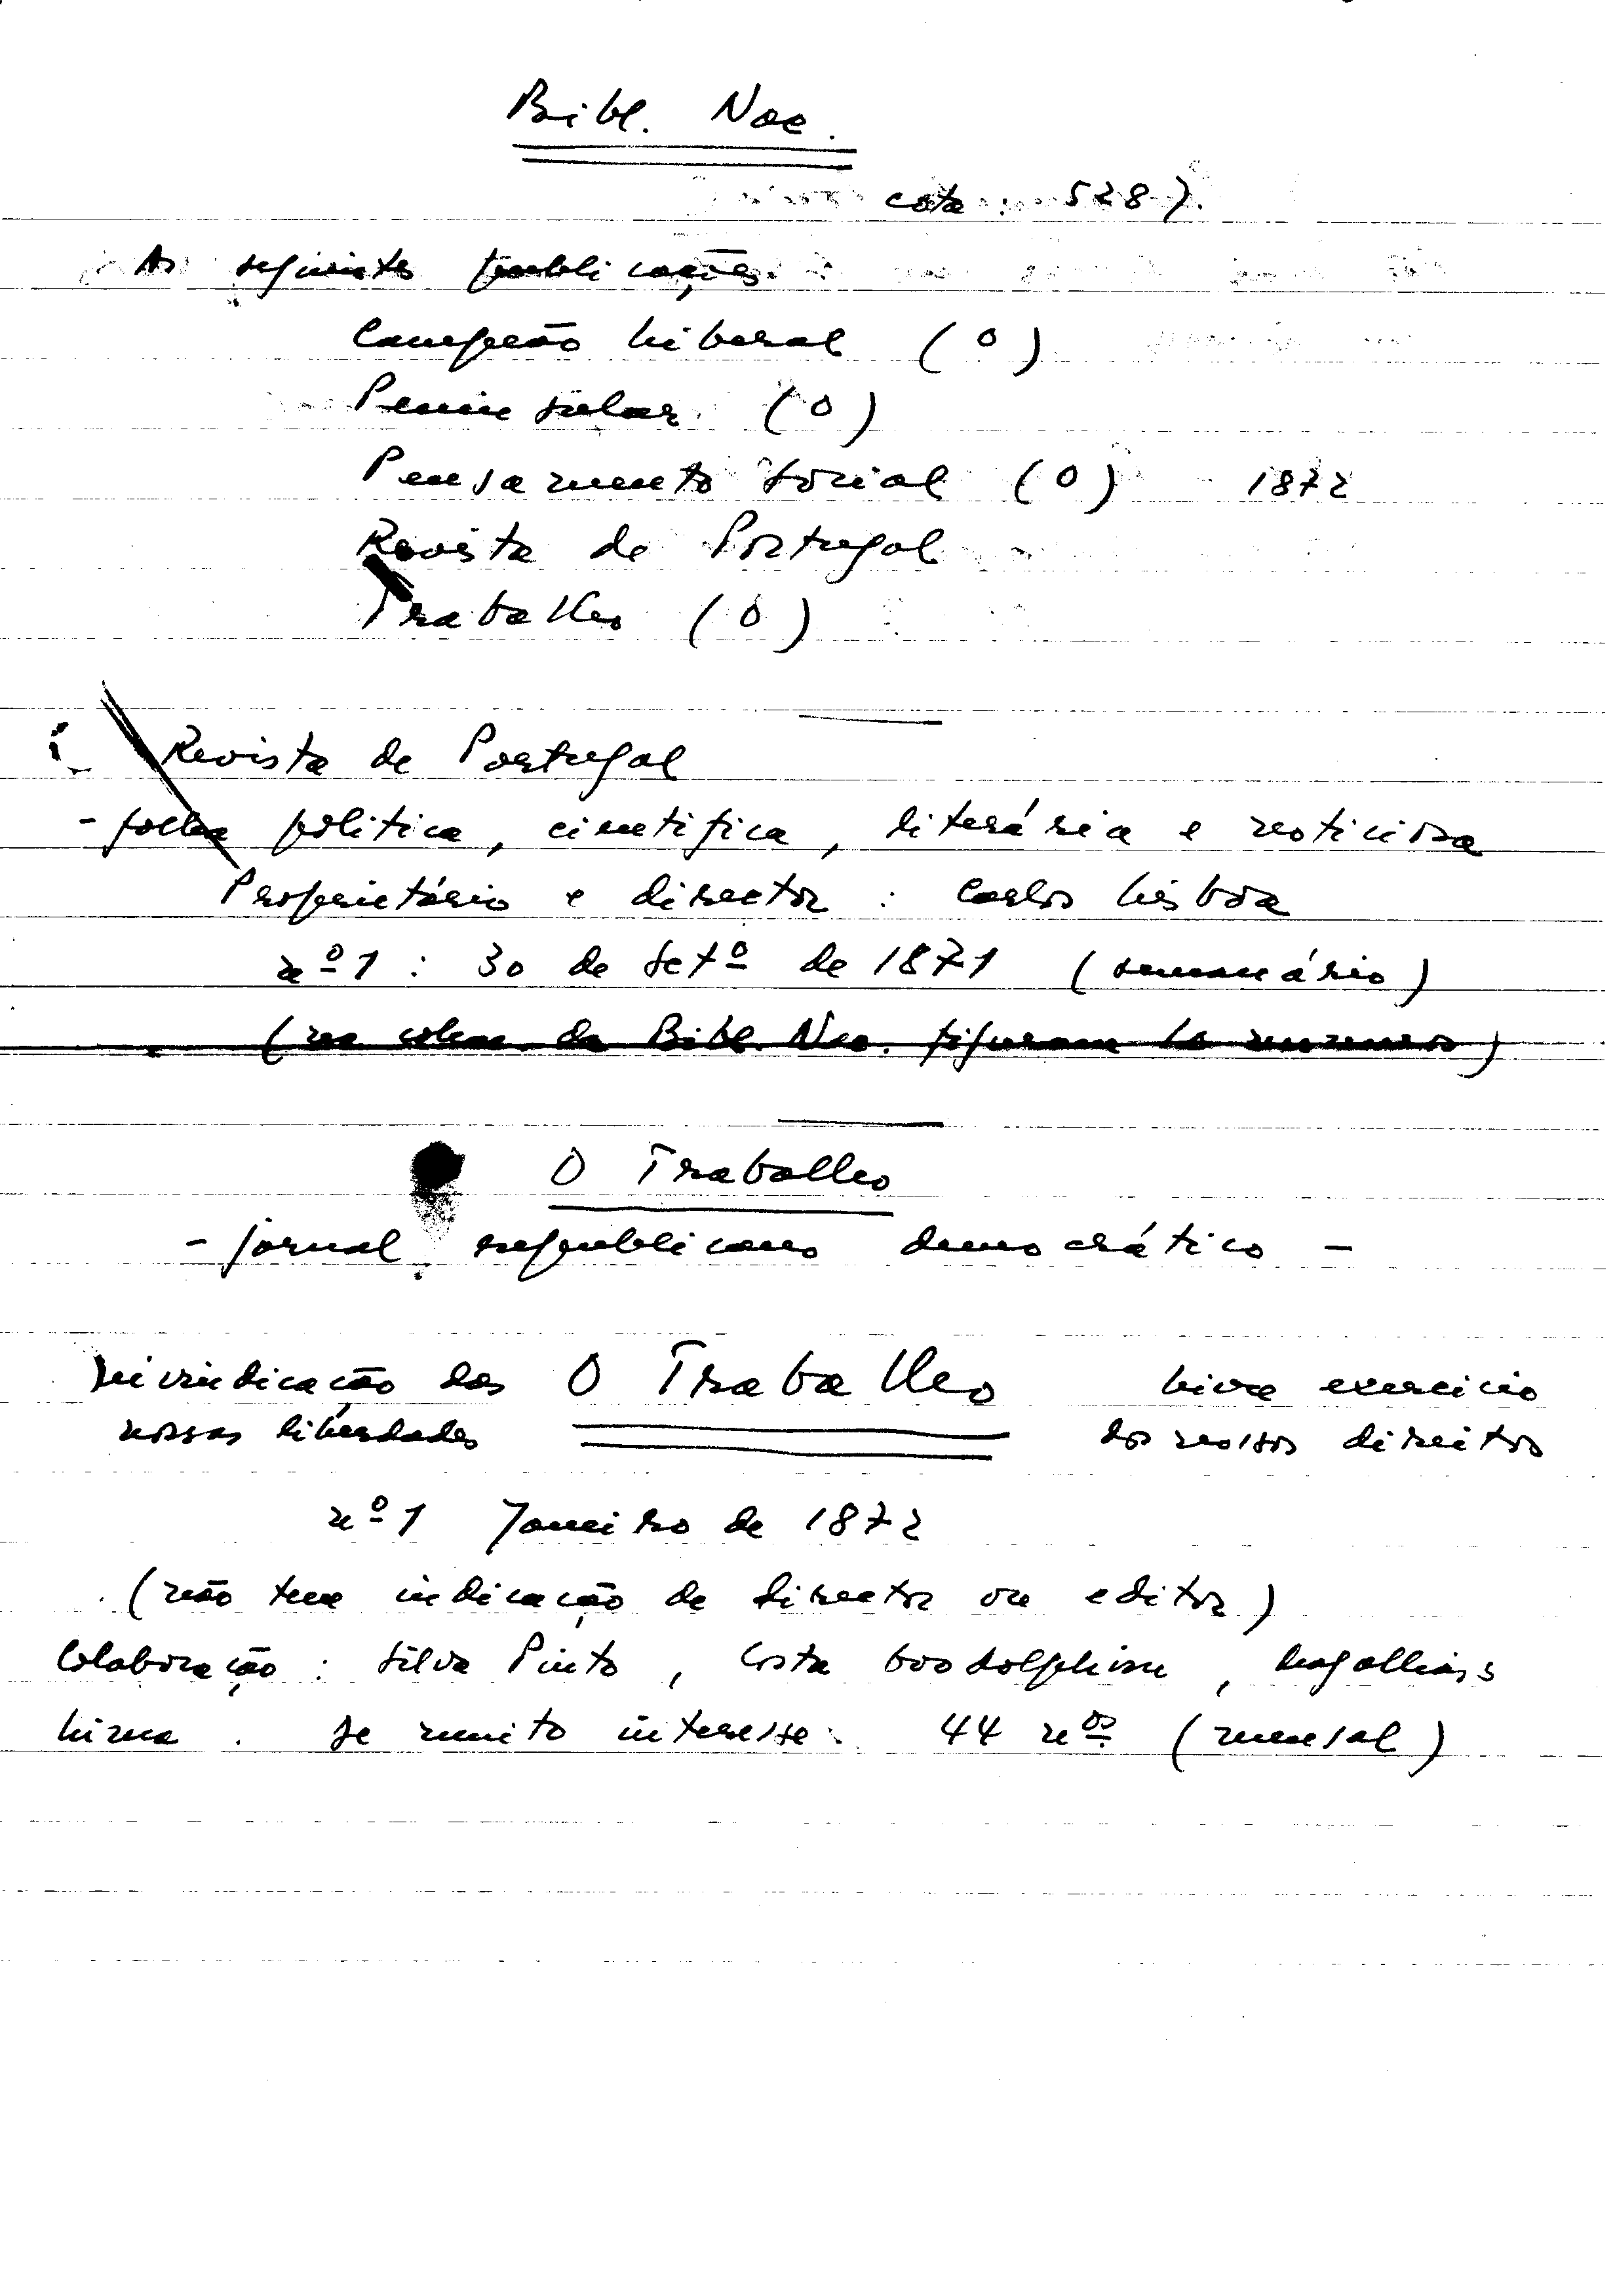 Bibl. Nac.
cota : 5287
As seguintes publicações
Campeão Liberal (O)
Peninsular (O)
Pensamento Social (O) 1872
Revista de Portugal
Trabalho (O)
Revista de Portugal
- folha politica, cientifica, literária e noticiosa
Proprietário e director : Carlos Lisboa
nº 1 : 30 de Setº de 1871 (semanário)
(na colec. da Bibl. Nac. figuram 10 numeros)
O Trabalho
- jornal republicano democrático -
Reivindicação das O Trabalho Livre exercicio
nossas liberdades dos nossos direitos
nº 1 Janeiro de 1872
(não tem indicação de director ou editor)
Colaboração : Silva Pinto, Costa Goodolphim, Magalhães
Lima. de muito interesse. 44 nºs (mensal)